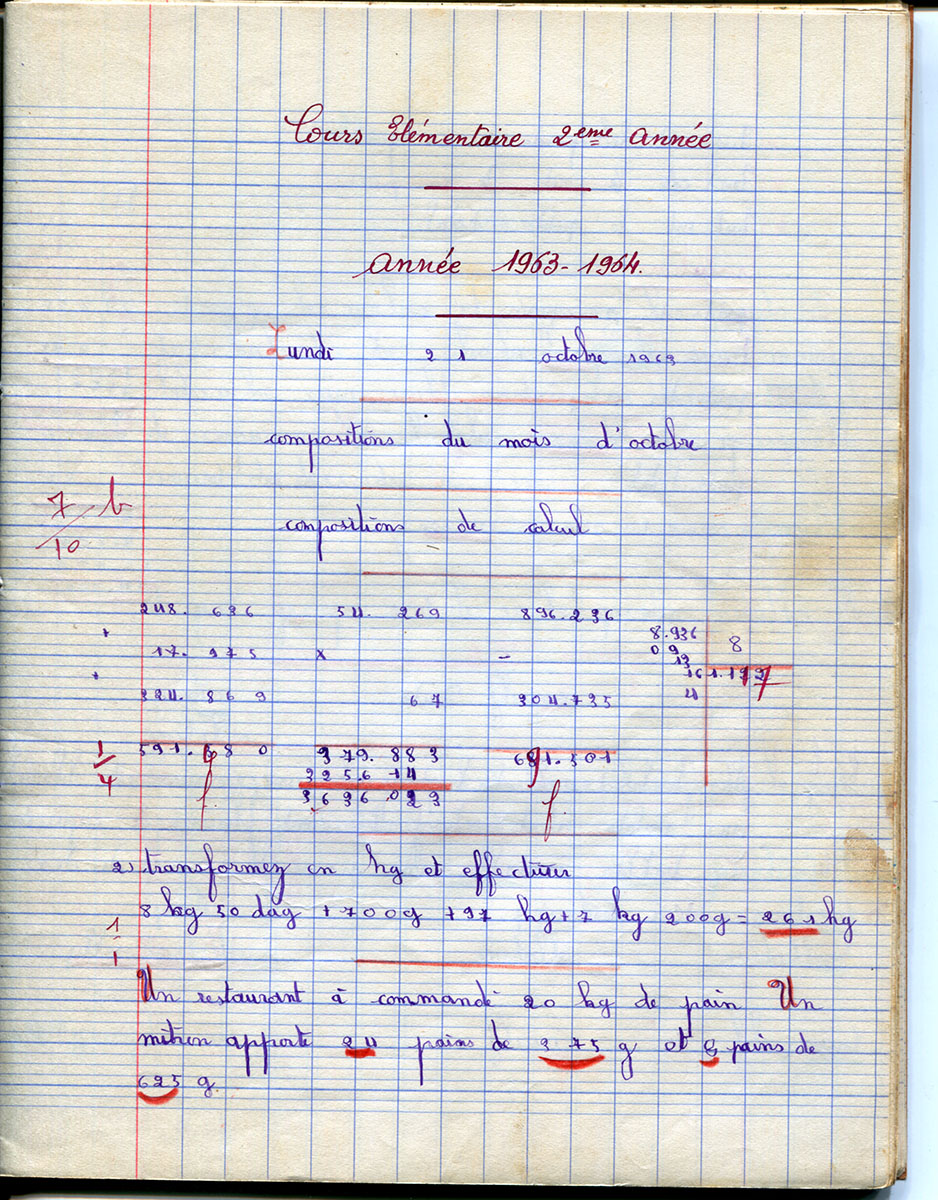 Cours Elémentaire 2eme Année
Année 1963-1964.
Lundi 21 octobre 1963
compositions du mois d'octobre
7 b
10
compositions de calcul
248. 636 54. 269 896.236
+ 17. 975 x -
+ 324. 869 67 304.735
591. 680 379. 883 691.501
325.6 14
3 636.023
f f
8.936 8
09
13
16 1.117
4
1
4
2) transformez en hg et effectuer
8 kg 50 dag + 700g + 97 hg + 7 kg 200g = 261 hg
1
1
Un restaurant à commandé 20 kg de pain Un
mitron apporte 24 pains de 375 g et 8 pains de
625 g.